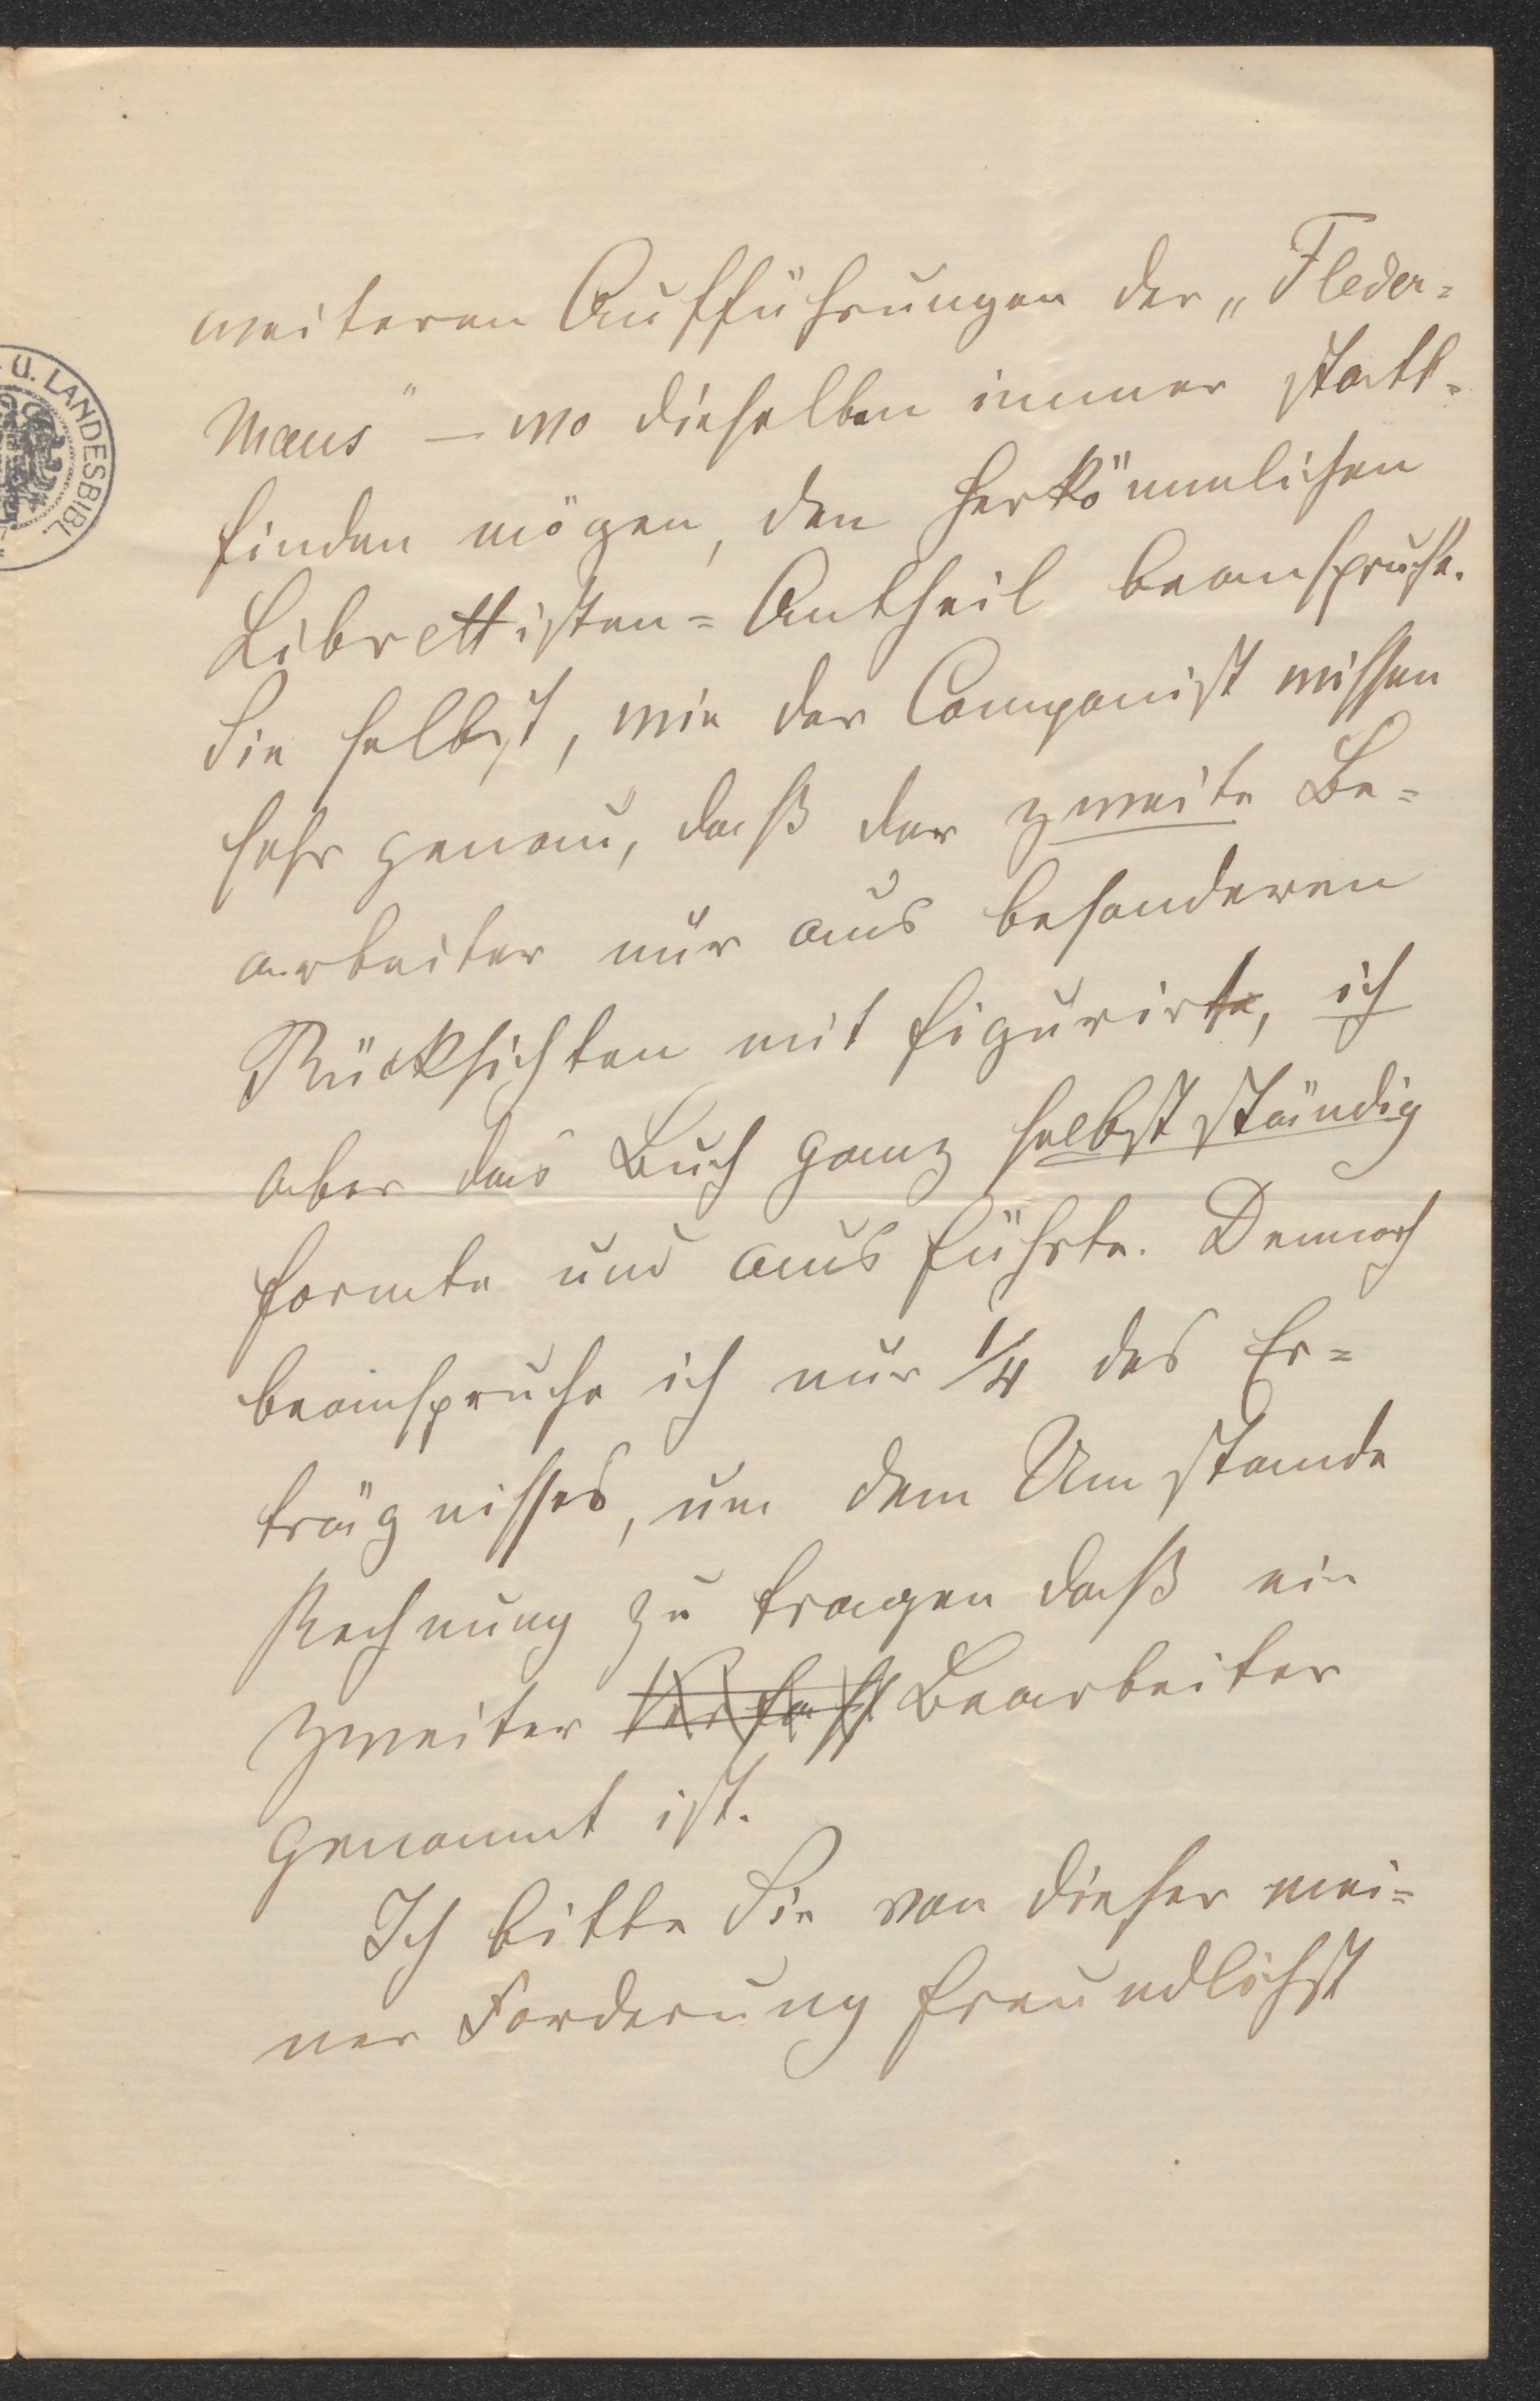 weiteren Aufführungen der „Fleder=
maus" – wo dieselben immer statt=
finden mögen, den herkömmlichen
Librettisten=Antheil beanspruche.
Sie selbst, wie der Componist wissen
sehr genau, daß der zweite Be=
arbeiter nur aus besonderen
Rücksichten mit figurirte, ich
aber das Buch ganz selbstständig
formte und ausführte. Dennoch
beanspruche ich nur 1/4 des Er=
trägnisses, um dem Umstande
Rechnung zu tragen daß ein
zweiter Verfass Bearbeiter
genannt ist.
Ich bitte Sie von dieser mei=
ner Forderung freundlichst
U. LANDESBIBL.